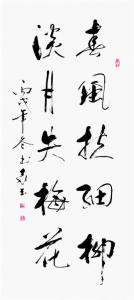 春風扶細柳
淡月失梅花
丙戌年冬